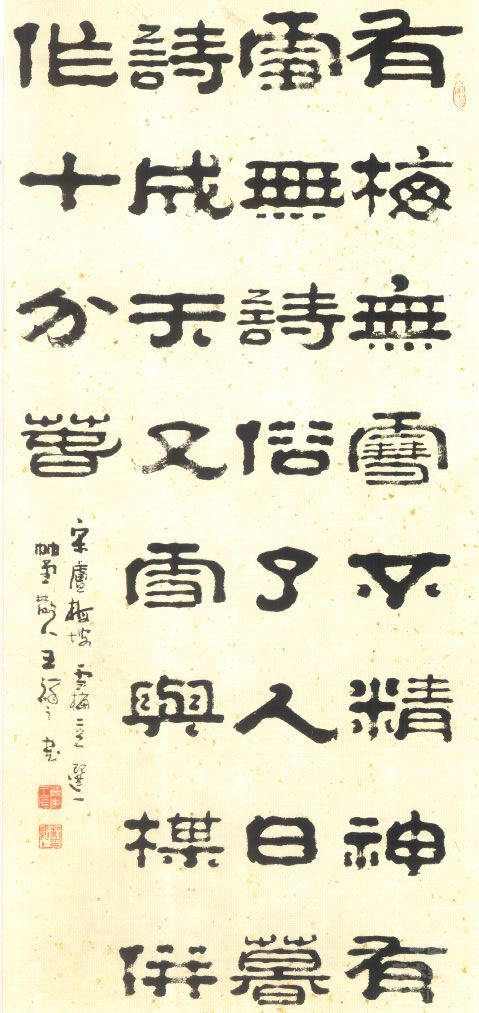 有梅無雪不精神有
雪無詩俗了人日暮
詩成天又雪與楳併
作十分萅
宋盧梅坡雪梅二首選一
散人王之書